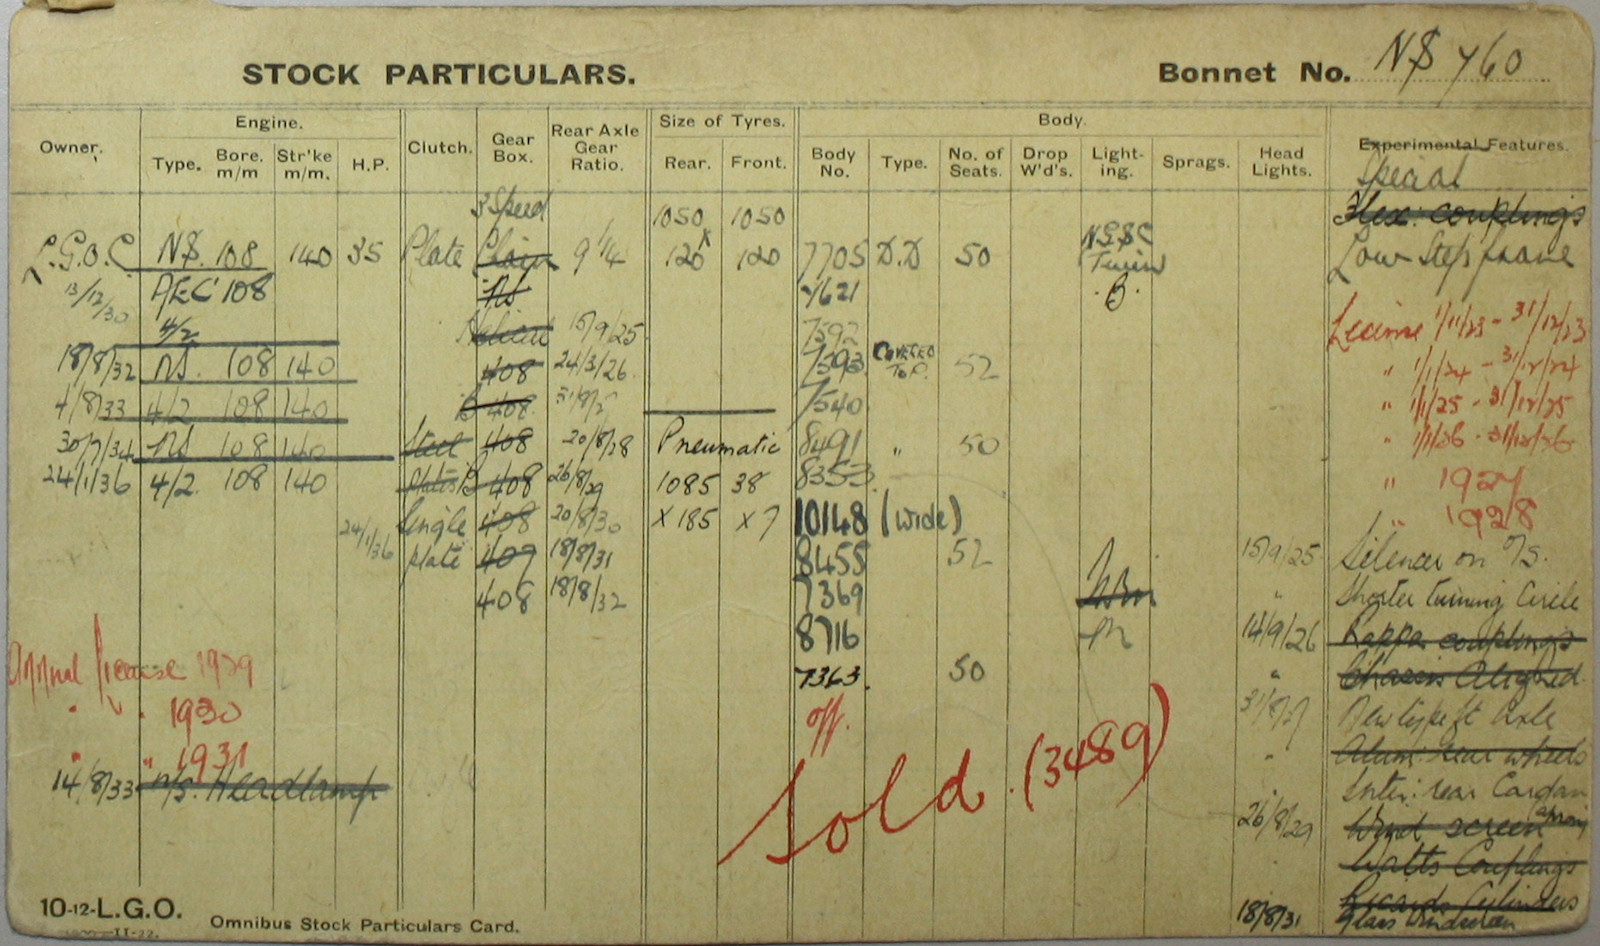 STOCK PARTICULARS. Bonnet No. NS 760
Owner. Engine. Clutch. Gear Box. Rear Axle Gear Ratio. Size of Tyres. Body. Experimental Features.
Type. Bore. m/m Str'ke m/m. H.P. Rear. Front. Body No. Type. No. of Seats. Drop W'd's. Light-ing. Sprags. Head Lights. Special
3 Speed 1050 1050 Flex: couplings
L.G.O.C NS. 108 140 35 Plate Chain 9 1/4 120 120 7705 D.D 50 NS&C Twin Low Step frame
13/12/30 AEC 108 NS 7621 B.
4/2 Helical 15/9/25 7592 License 1/11/23 - 31/12/23
18/8/32 NS. 108 140 408 24/3/26 7593 COVERED TOP. 52 " 1/1/24 - 31/12/24
4/8/33 4/2 108 140 B 408 7540 " 1/1/25 - 31/12/25
30/7/34 NS 108 140 Steel 408 20/8/28 Pneumatic 8491 " 50 " 1/1/26 - 31/12/26
24/1/36 4/2. 108 140 plates B 408 26/8/29 1085 38 8353 " 1927
Single 408 20/8/30 X 185 X 7 10148 (wide) " 1928
24/1/36 plate 407 18/8/31 8455 52 15/9/25 Silencer on O/S.
408 18/8/32 7369 " Shorter turning Circle
8716 14/9/26 Kappa couplings
Annual license 1929 7363. 50 " Chassis Aligned.
" " 1930 off. 31/8/27 New type ft Axle
" " 1931 " Alum: rear wheels
14/8/33 N/S. Headlamp Sold. (3489) Inter: rear Cardan
26/8/29 Wind screen
Watts Couplings
Ricardo Cylinders
18/8/31 Glass Windscreen
10-12-L.G.O. Omnibus Stock Particulars Card.